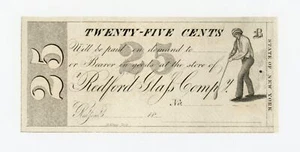 TWENTY-FIVE CENTS
B
25
Will be paid on demand to
or Bearer in goods at the store of
Redford Glass Compy.
No
Redford 18
STATE OF NEW YORK